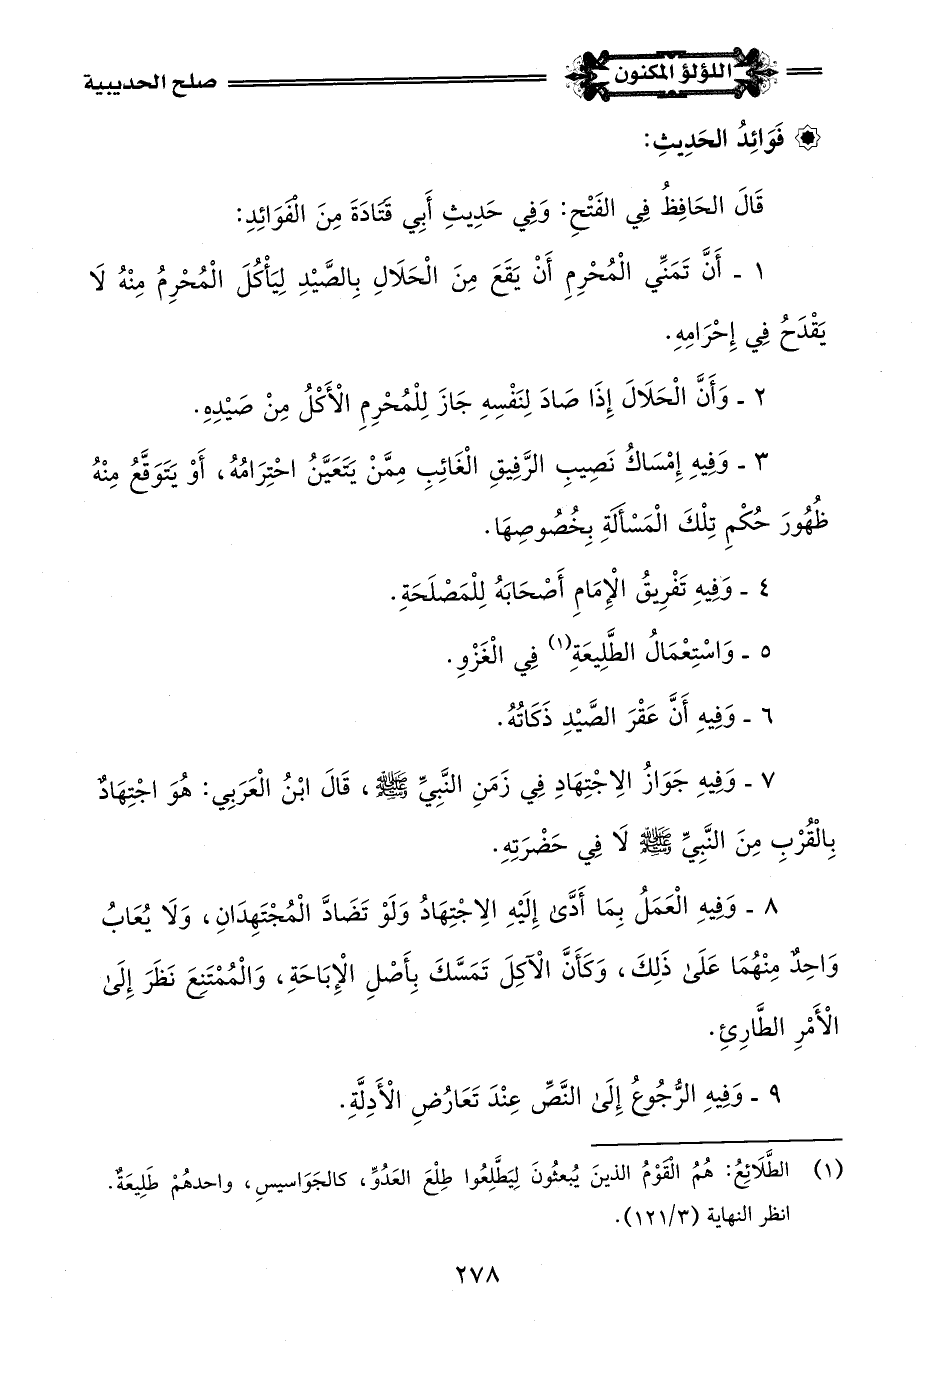 اللؤلؤ المكنون
صلح الحديبية
فَوَائِدُ الحَدِيثِ:
قَالَ الحَافِظُ فِي الفَتْحِ: وَفِي حَدِيثِ أَبِي قَتَادَةَ مِنَ الْفَوَائِدِ:
١ ـ أَنَّ تَمَنِّي الْمُحْرِمِ أَنْ يَقَعَ مِنَ الْحَلَالِ بِالصَّيْدِ لِيَأْكُلَ الْمُحْرِمُ مِنْهُ لَا
يَقْدَحُ فِي إِحْرَامِهِ.
٢ ـ وَأَنَّ الْحَلَالَ إِذَا صَادَ لِنَفْسِهِ جَازَ لِلْمُحْرِمِ الْأَكْلُ مِنْ صَيْدِهِ.
٣ ـ وَفِيهِ إِمْسَاكُ نَصِيبِ الرَّفِيقِ الْغَائِبِ مِمَّنْ يَتَعَيَّنُ احْتِرَامُهُ، أَوْ يَتَوَقَّعُ مِنْهُ
ظُهُورَ حُكْمِ تِلْكَ الْمَسْأَلَةِ بِخُصُوصِهَا.
٤ ـ وَفِيهِ تَفْرِيقُ الْإِمَامِ أَصْحَابَهُ لِلْمَصْلَحَةِ.
٥ ـ وَاسْتِعْمَالُ الطَّلِيعَةِ(١) فِي الْغَزْوِ.
٦ ـ وَفِيهِ أَنَّ عَقْرَ الصَّيْدِ ذَكَاتُهُ.
٧ ـ وَفِيهِ جَوَازُ الِاجْتِهَادِ فِي زَمَنِ النَّبِيِّ ﷺ، قَالَ ابْنُ الْعَرَبِي: هُوَ اجْتِهَادٌ
بِالْقُرْبِ مِنَ النَّبِيِّ ﷺ لَا فِي حَضْرَتِهِ.
٨ ـ وَفِيهِ الْعَمَلُ بِمَا أَدَّىٰ إِلَيْهِ الِاجْتِهَادُ وَلَوْ تَضَادَّ الْمُجْتَهِدَانِ، وَلَا يُعَابُ
وَاحِدٌ مِنْهُمَا عَلَىٰ ذَلِكَ، وَكَأَنَّ الْآكِلَ تَمَسَّكَ بِأَصْلِ الْإِبَاحَةِ، وَالْمُمْتَنِعَ نَظَرَ إِلَىٰ
الْأَمْرِ الطَّارِئِ.
٩ ـ وَفِيهِ الرُّجُوعُ إِلَىٰ النَّصِّ عِنْدَ تَعَارُضِ الْأَدِلَّةِ.
(١) الطَّلَائِعُ: هُمُ الْقَوْمُ الذينَ يُبعثُونَ لِيَطَّلِعُوا طِلْعَ العَدُوِّ، كالجَوَاسيسِ، واحدهُمْ طَلِيعَةٌ.
انظر النهاية (١٢١/٣).
٢٧٨